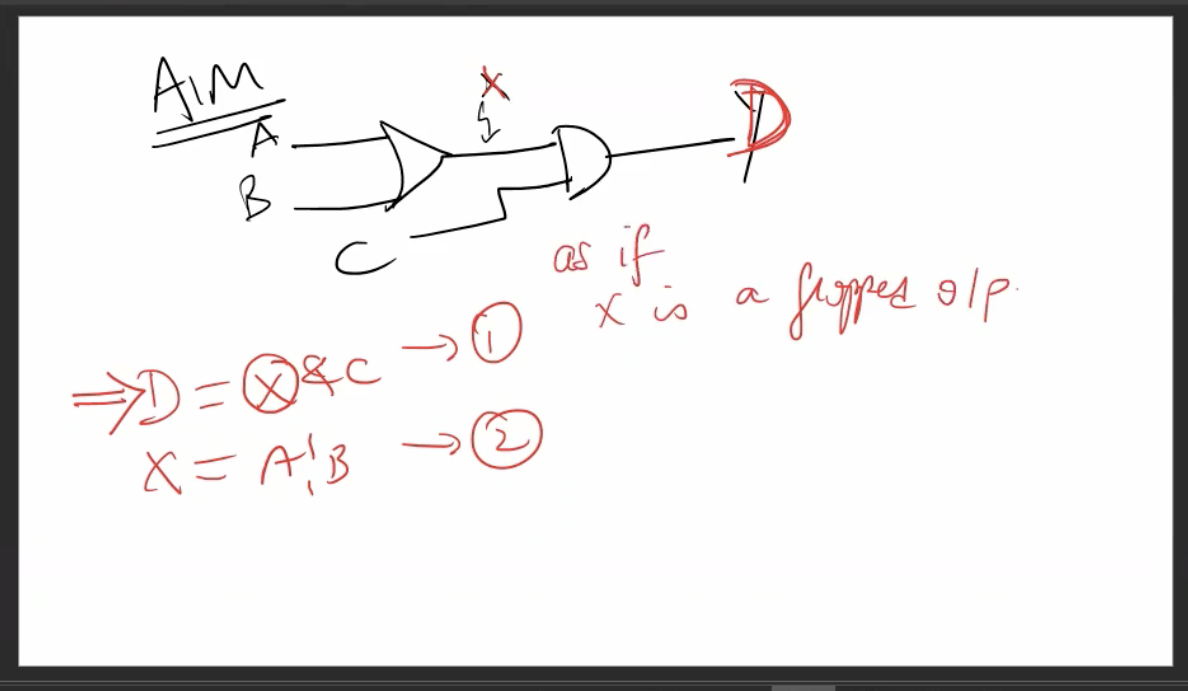 AIM
X
A
D
B
C
as if
X is a flopped o/p.
⇒ D = X & C → 1
X = A¦B → 2